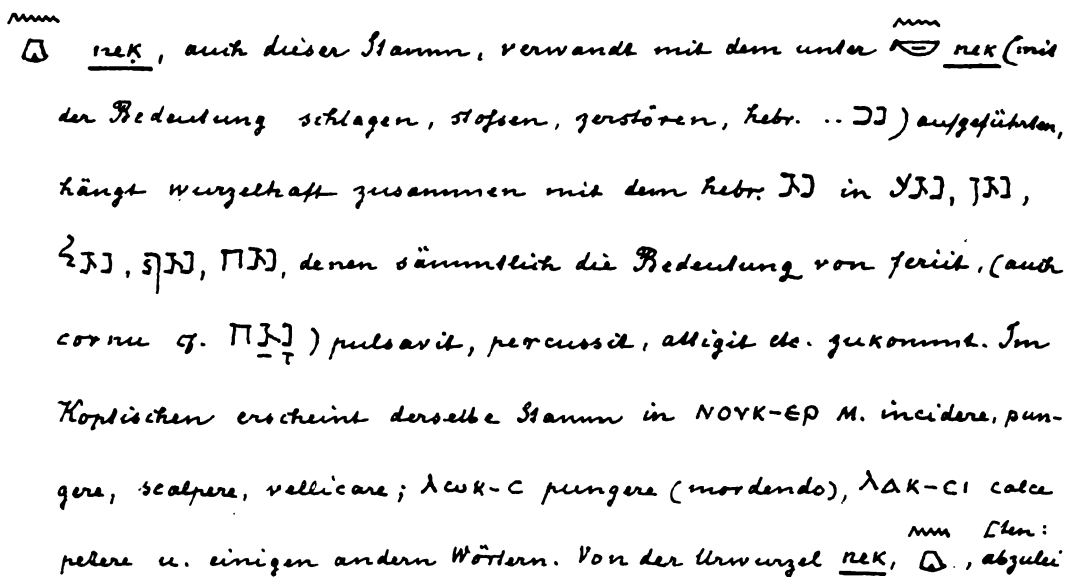 𓈖𓎼 neḳ, auch dieser Stamm, verwandt mit dem unter 𓈖𓎡 nek (mit
der Bedeutung schlagen, stofsen, zerstören, hebr. ..נכ) aufgeführten,
hängt wurzelhaft zusammen mit dem hebr. נג in נגע, נגן,
נגף, נגח, denen sämmtlich die Bedeutung von feriit, (auch
cornu cf. נָגַח) pulsavit, percussit, attigit etc. zukommt. Im
Koptischen erscheint derselbe Stamm in ⲛⲟⲩⲕ-ⲉⲣ M. incidere, pun-
gere, scalpere, vellicare; ⲗⲱⲕ-ⲥ pungere (mordendo), ⲗⲁⲕ-ⲥⲓ calce
petere u. einigen andern Wörtern. Von der Urwurzel neḳ, 𓈖𓎼, abzulei
[ten: